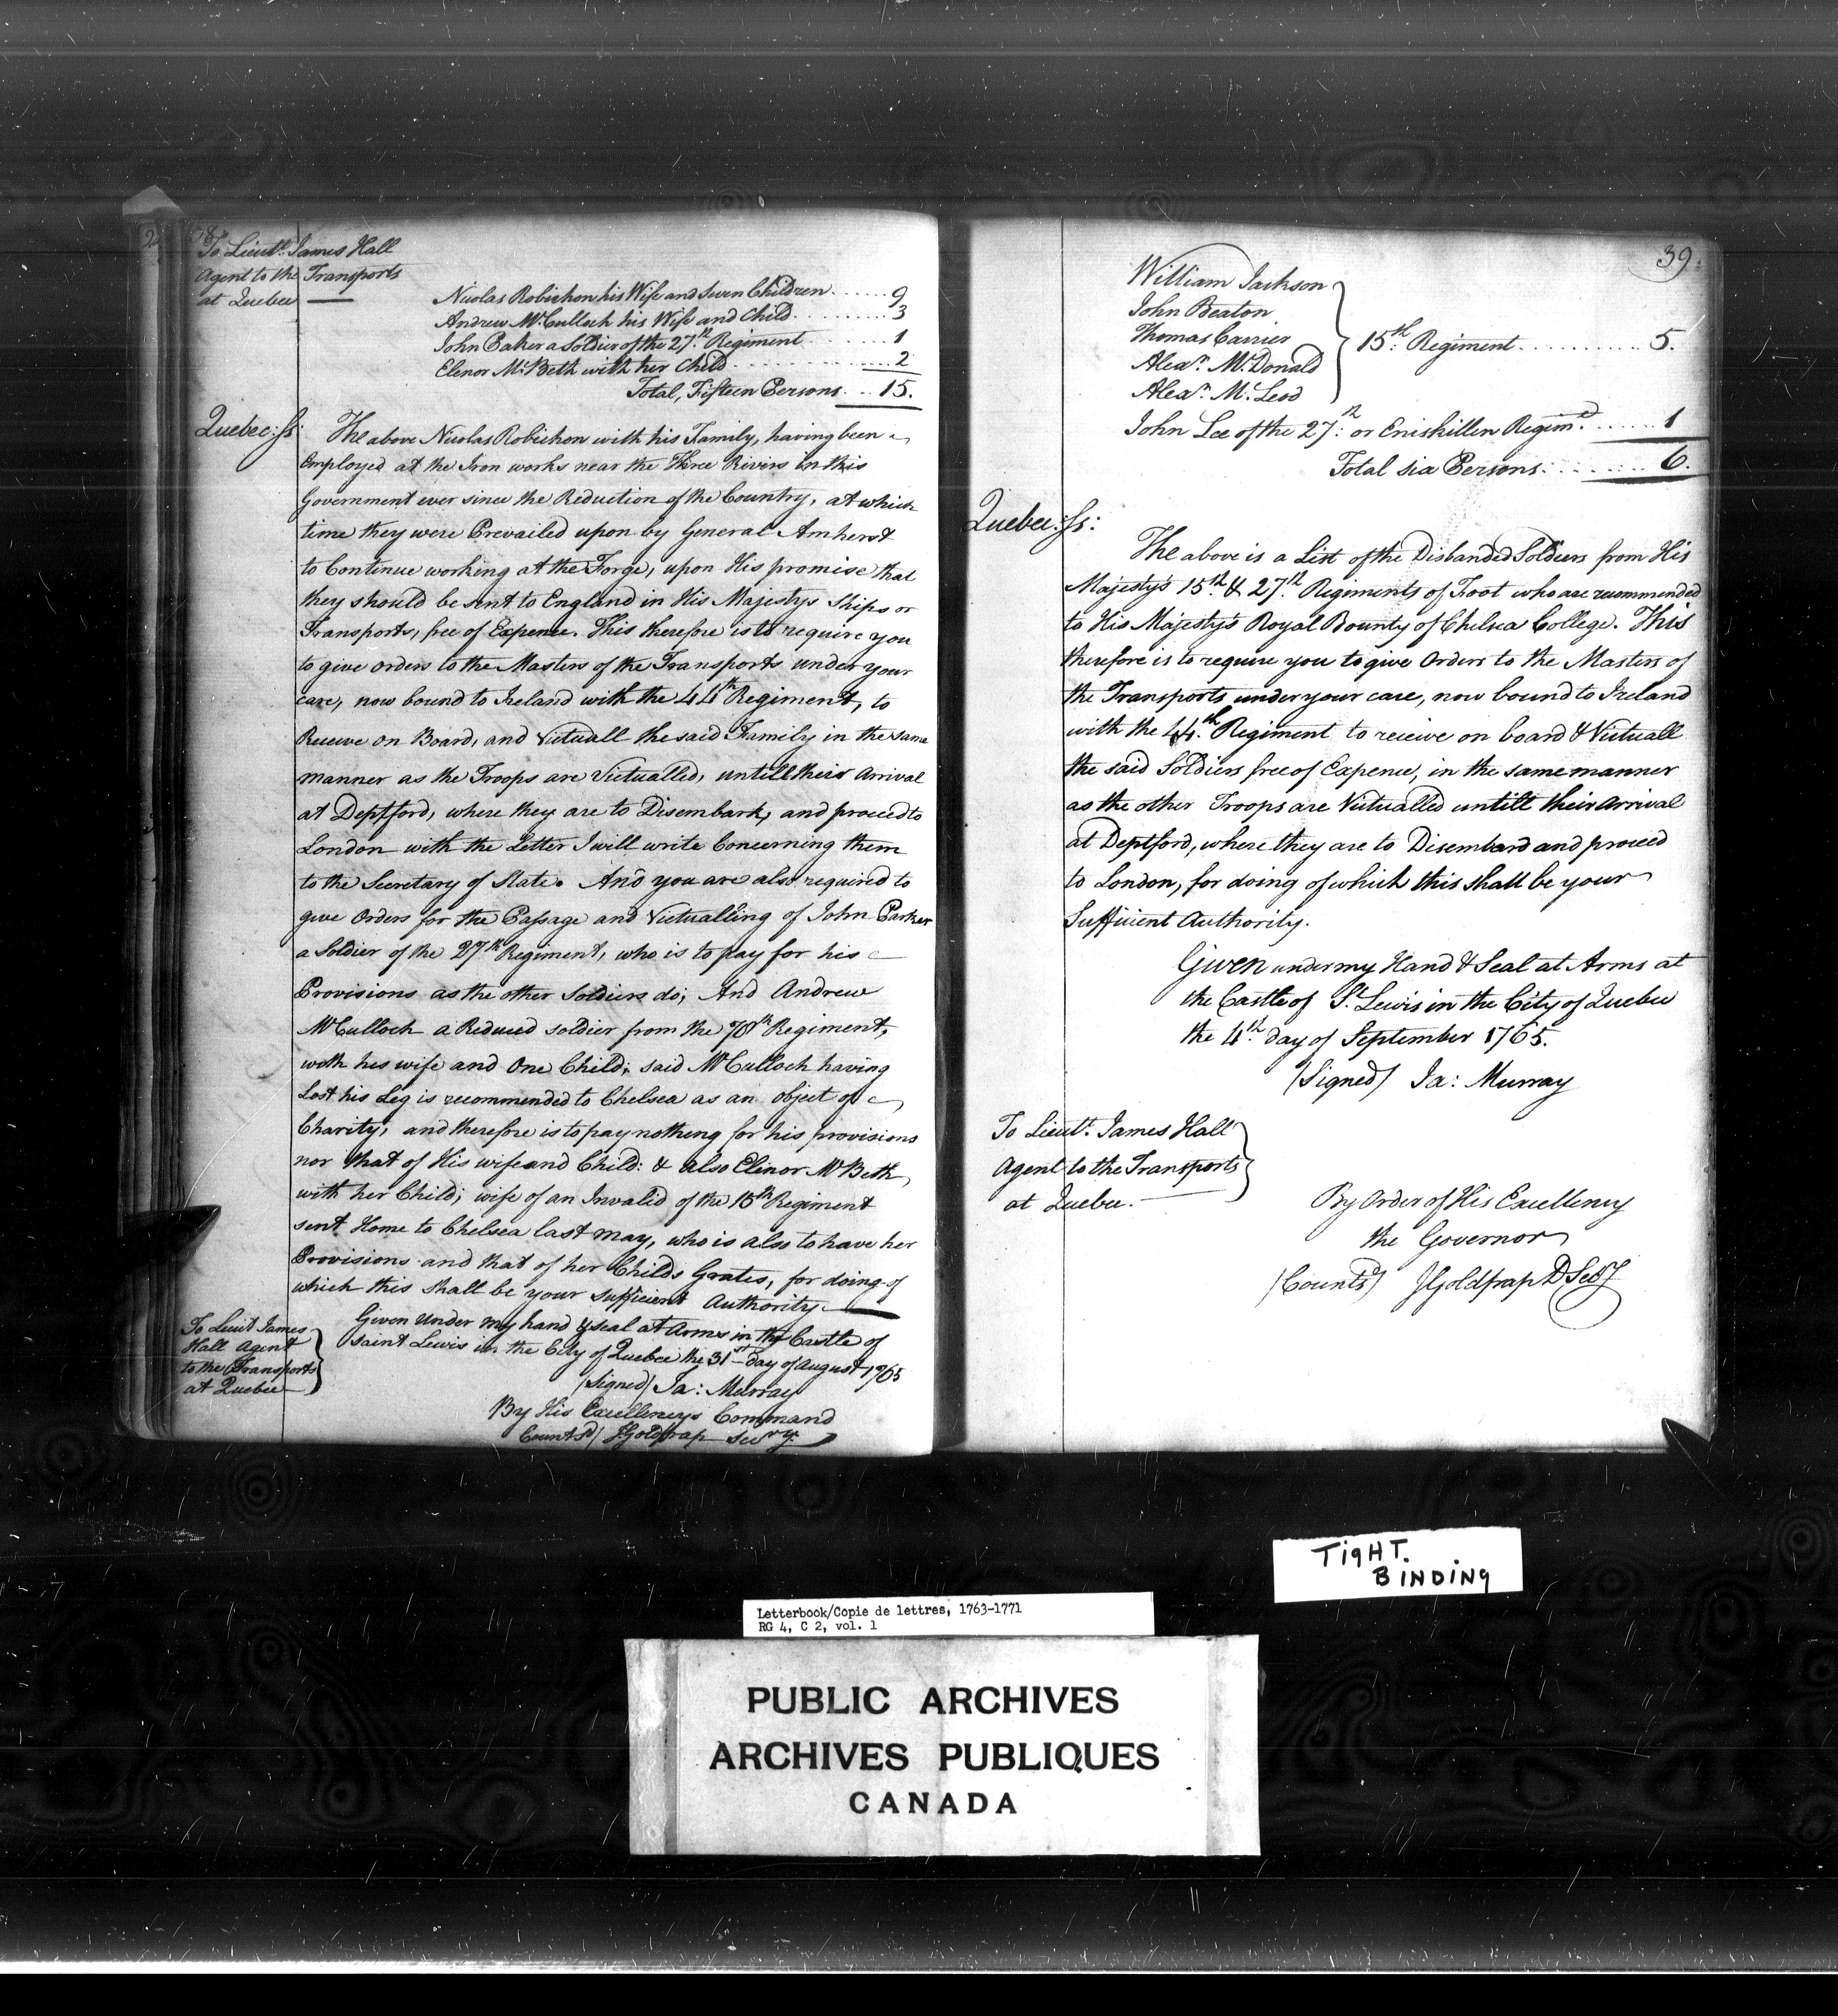 38
To Lieut.t James Hall
Agent to the Transports
at Quebec
Nicolas Robichon his Wife and Seven Children 9
Andrew McCulloch his Wife and Child 3
John Paker a Soldier of the 27th Regiment 1
Elenor McBeth with her Child 2
Total, Fifteen Persons 15.
Quebec: ss:
The above Nicolas Robichon with his Family, having been
Employed at the Iron works near the Three Rivers in this
Government ever since the Reduction of the Country, at which
time they were Prevailed upon by General Amherst
to Continue working at the Forge, upon His promise that
they should be sent to England in His Majestys Ships or
Transports, free of Expence. This therefore is to require you
to give orders to the Masters of the Transports under your
care, now bound to Ireland with the 44th Regiment, to
Receive on Board, and Victuall the said Family in the same
manner as the Troops are Victualled, untill their Arrival
at Deptford, where they are to Disembark, and proceed to
London with the Letter I will write Concerning them
to the Secretary of State. And you are also required to
give Orders for the Passage and Victualling of John Parker
a Soldier of the 27th Regiment, who is to pay for his
Provisions as the other Soldiers do; And Andrew
McCulloch a Reduced soldier from the 78th Regiment,
with his wife and One Child; said McCulloch having
Lost his Leg is recommended to Chelsea as an object of
Charity, and therefore is to pay nothing for his provisions
nor that of His wife and Child: & also Elinor McBeth,
with her Child; wife of an Invalid of the 15th Regiment
sent Home to Chelsea last May, who is also to have her
Provisions and that of her Childs Grates, for doing of
which this shall be your sufficient Authority.
Given Under my hand & seal at Arms in the Castle of
Saint Lewis in the City of Quebec the 31st day of August 1765
(Signed) Ja: Murray
To Lieut James
Hall Agent
to the Transports
at Quebec
By His Excellencys Command
Countsd/ JGoldfrap Secry.
39.
William Jackson
John Beaton
Thomas Carrier
Alexr. McDonald
Alexr. McLeod
15th Regiment 5.
John Lee of the 27th: or Eniskillen Regimt. 1
Total six Persons: 6.
Quebec: ss:
The above is a List of the Disbanded Soldiers from His
Majesty's 15th. & 27th. Regiments of Foot who are recommended
to His Majesty's Royal Bounty of Chelsea College. This
therefore is to require you to give Orders to the Masters of
the Transports under your care, now bound to Ireland
with the 44th. Regiment to receive on board & Victuall
the said Soldiers free of Expence, in the same manner
as the other Troops are Victualled untill their Arrival
at Deptford, where they are to Disembard and proceed
to London, for doing of which this shall be your
Sufficient Authority.
Given under my Hand & Seal at Arms at
the Castle of St. Lewis in the City of Quebec
the 4th. day of September 1765.
(Signed) Ja: Murray
To Lieutt. James Hall
Agent to the Transports
at Quebec.
By Order of His Excellency
the Governor
(Countsd) JGoldfrap D Secy
TIGHT.
BINDING
Letterbook/Copie de lettres, 1763-1771
RG 4, C 2, vol. 1
PUBLIC ARCHIVES
ARCHIVES PUBLIQUES
CANADA